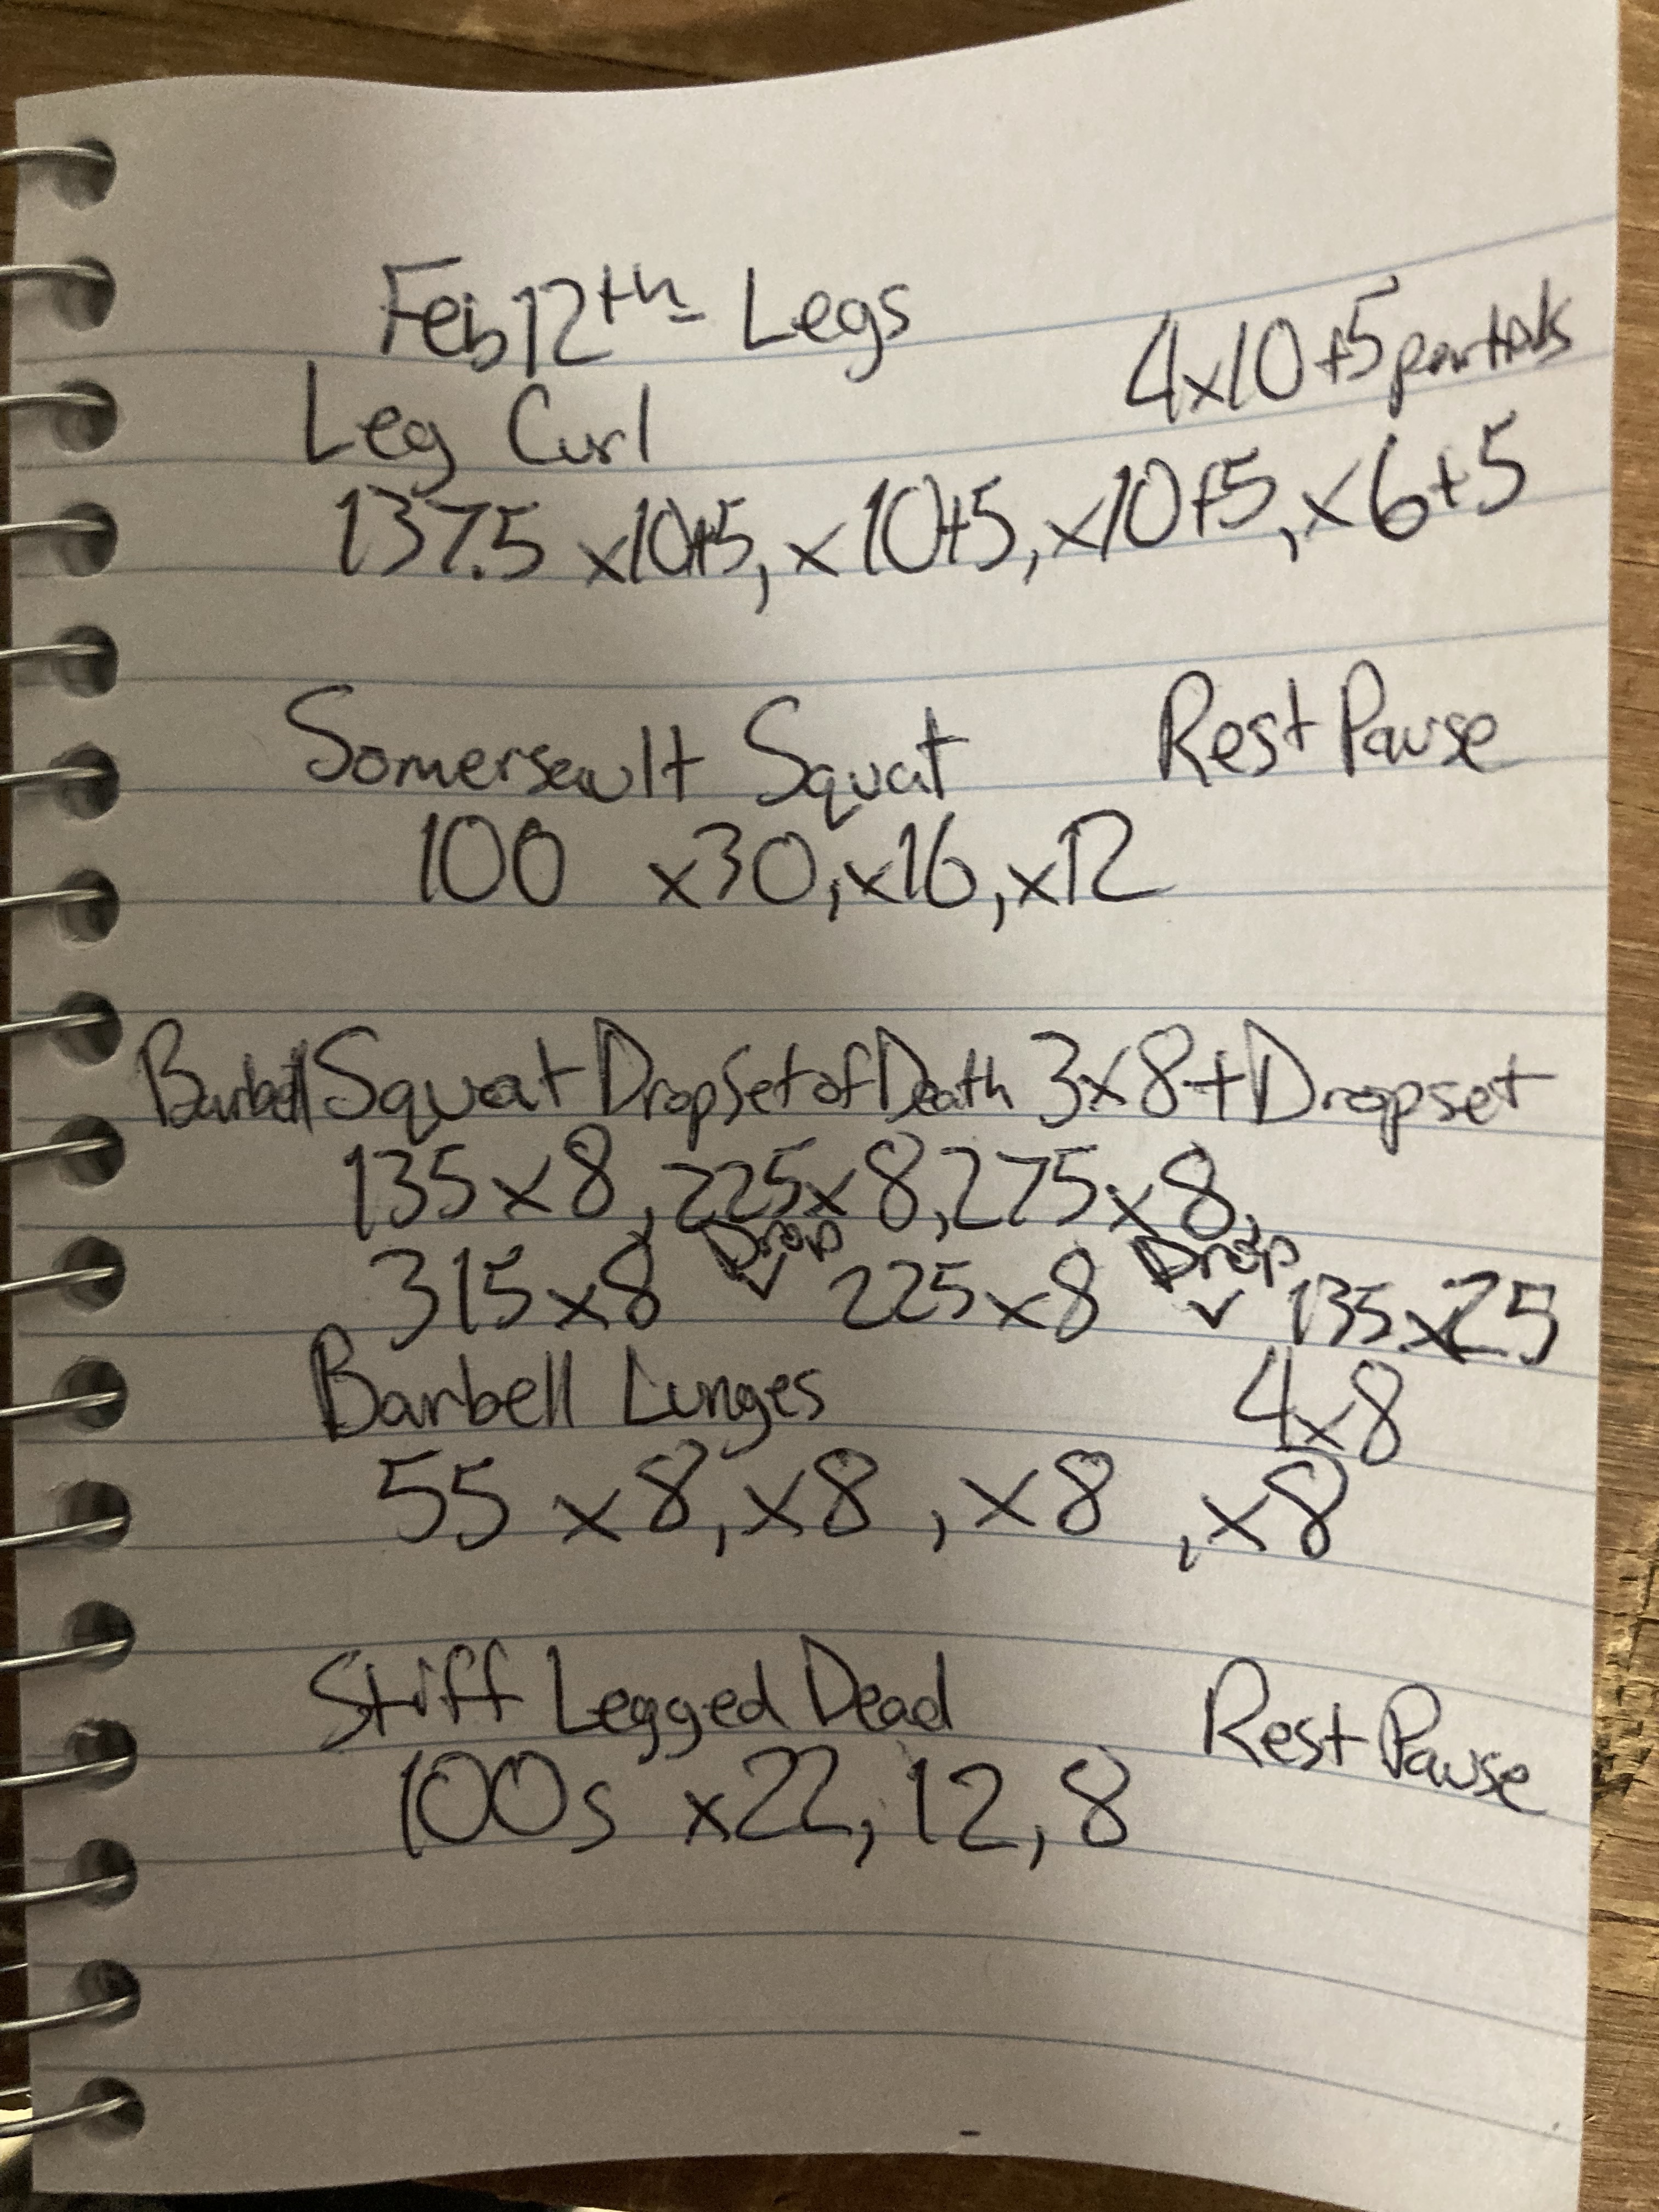 Feb 12th Legs
Leg Curl 4x10+5 partials
137.5 x10+5, x10+5, x10+5, x6+5
Somersault Squat Rest Pause
100 x30, x16, x12
Barbell Squat Drop Set of Death 3x8+Dropset
135x8, 225x8, 275x8,
315x8 Drop ✓ 225x8 Drop ✓ 135x25
Barbell Lunges 4x8
55 x8, x8, x8, x8
Stiff Legged Dead Rest Pause
100s x22, 12, 8